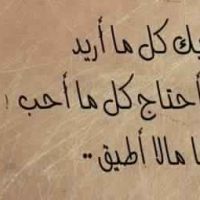 كل ما أريد
أحتاج كل ما أحب
مالا أطيق ..